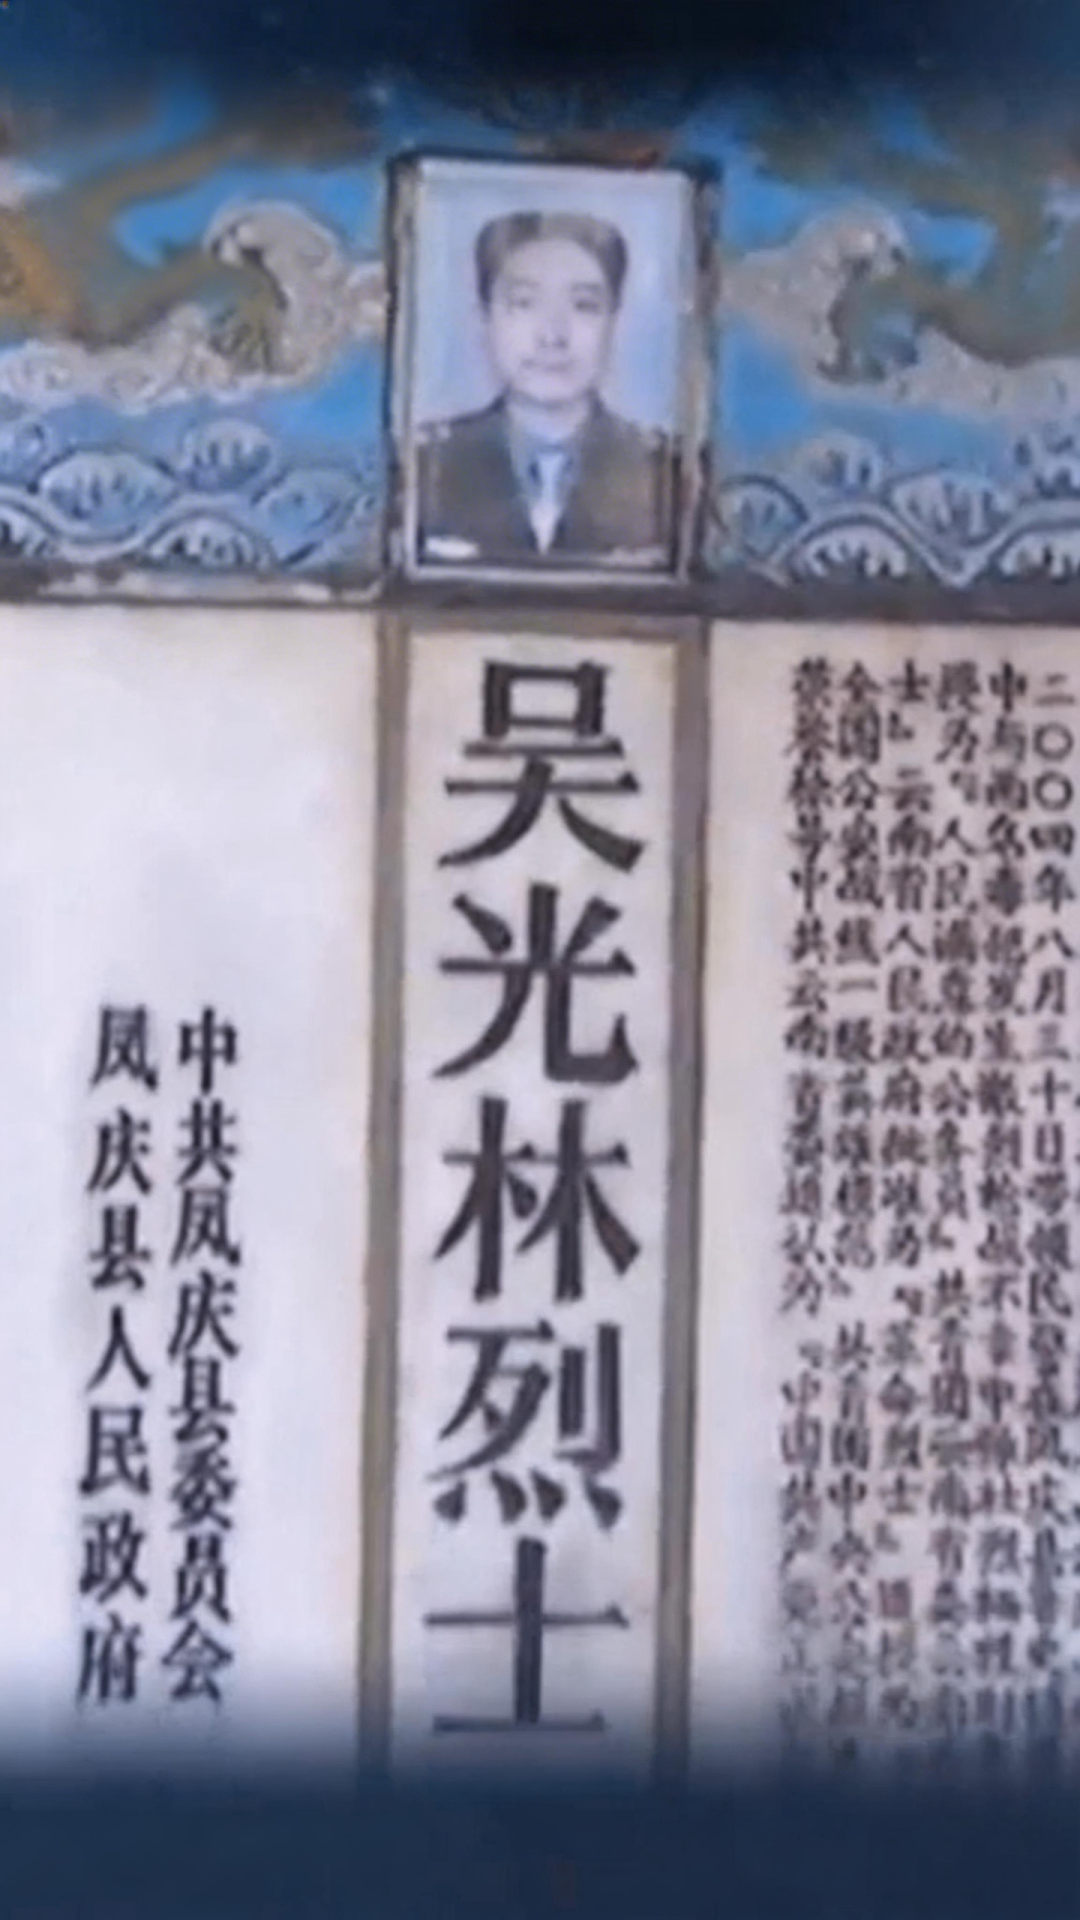 二〇〇四年八月三十日带领民警在凤庆县
中与两名毒犯发生激烈枪战不幸中弹壮烈牺牲
授为“人民满意的公务员”共青团云南省委
士”云南省人民政府批准为“革命烈士”追授为
全国公安战线一级英雄模范”共青团中央公安部
荣誉称号中共云南省委追认为“中国共产党正
吴光林烈士
中共凤庆县委员会
凤庆县人民政府